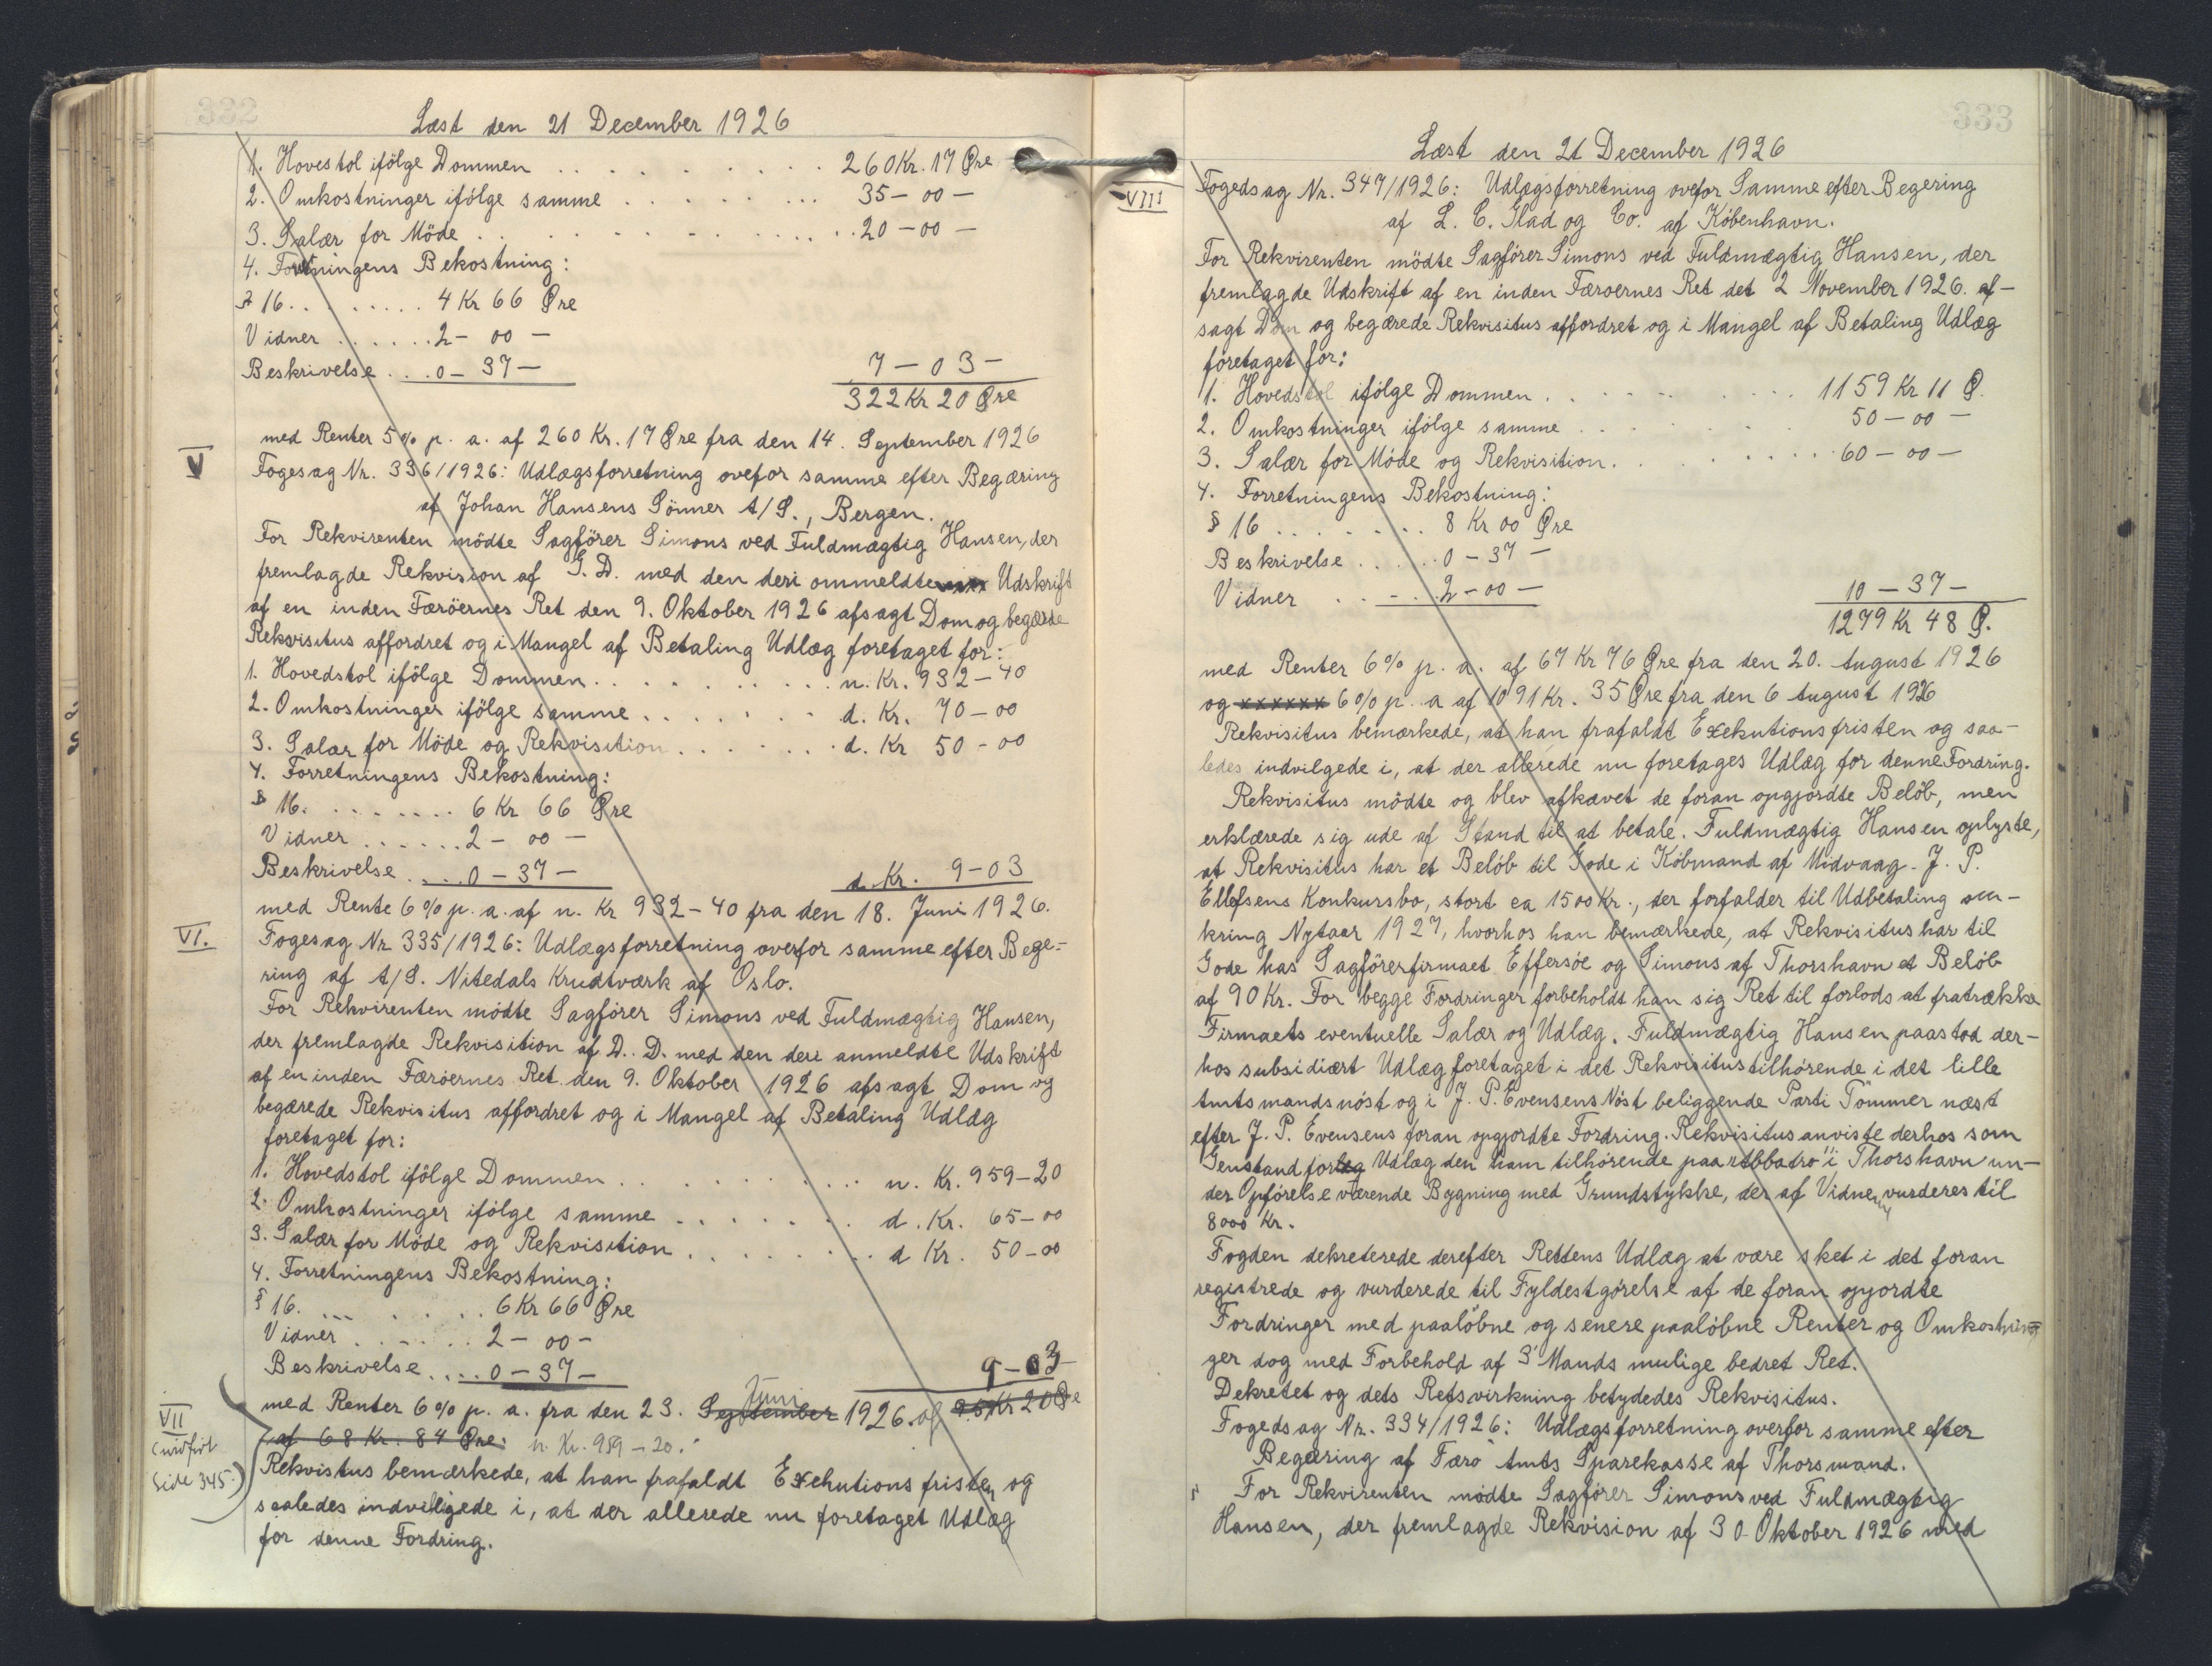 332
Læst den 21 December 1926
1. Hovestol ifölge Dommen . . . . . . . . . . 260 Kr. 17 Øre
2. Omkostninger ifölge samme . . . . . . . . 35 - 00 -
3. Salær for Möde . . . . . . . . . . . . 20 - 00 -
4. Forretningens Bekostning:
§ 16. . . . . . . . 4 Kr 66 Øre
Vidner . . . . . . 2 - 00 -
Beskrivelse . . . 0 - 37 - 7 - 03 -
322 Kr 20 Øre
med Renter 5% p. a. af 260 Kr. 17 Øre fra den 14. September 1926
V
Fogesag Nr. 336/1926: Udlægsforretning ovefor samme efter Begæring
af Johan Hansens Sönner A/S., Bergen.
For Rekvirenten mödte Sagförer Simons ved Fuldmægtig Hansen, der
fremlagde Rekvision af G. D. med den deri ommeldte Udskrift
af en inden Færöernes Ret den 9. Oktober 1926 afsagt Dom og begærde
Rekvisitus affordret og i Mangel af Betaling Udlæg foretaget for:
1. Hovedstol ifölge Dommen . . . . . . . . . n. Kr. 932 - 40
2. Omkostninger ifölge samme . . . . . . . d. Kr. 70 - 00
3. Salær for Möde og Rekvisition . . . . . . . d. Kr 50 - 00
4. Forretningens Bekostning:
§ 16. . . . . . . . 6 Kr 66 Øre
Vidner . . . . . . 2 - 00 -
Beskrivelse . . . . 0 - 37 - d. Kr. 9 - 03
med Rente 6% p. a. af n. Kr 932 - 40 fra den 18. Juni 1926.
VI.
Fogesag Nr. 335/1926: Udlægsforretning overfor samme efter Bege-
ring af A/S. Nitedals Krudtværk af Oslo.
For Rekvirenten mödte Sagförer Simons ved Fuldmægtig Hansen,
der fremlagde Rekvisition af D. D. med den deri anmeldte Udskrift
af en inden Færöernes Ret den 9. Oktober 1926 afsagt Dom og
begærede Rekvisitus affordret og i Mangel af Betaling Udlæg
foretaget for:
1. Hovedstol ifölge Dommen . . . . . . . . . . n. Kr. 959 - 20
2. Omkostninger ifölge samme . . . . . . . d. Kr. 65 - 00
3. Salær for Möde og Rekvisition . . . . . . . . d Kr. 50 - 00
4. Forretningens Bekostning:
§ 16. . . . . . . . . 6 Kr 66 Øre
Vidner . . . . . . 2 - 00 -
Beskrivelse . . . . 0 - 37 - 9 - 03
med Renter 6% p. a. fra den 23. September Juni 1926 af 959 Kr 20 Øre
af 68 Kr. 84 Øre: n. Kr. 959 - 20.
VII
side 345.)
Rekvistus bemærkede, at han frafaldt Exekutionsfristen og
saaledes indvilligede i, at der allerede nu foretaget Udlæg
for denne Fordring.
333
Læst den 21 December 1926
VIII
Fogedsag Nr. 347/1926: Udlægsforretning ovefor Samme efter Begering
af L. C. Glad og Co. af Köbenhavn.
For Rekvirenten mödte Sagförer Simons ved Fuldmægtig Hansen, der
fremlagde Udskrift af en inden Færoernes Ret det 2 November 1926. af-
sagt Dom og begærede Rekvisitus affordret og i Mangel af Betaling Udlæg
foretaget for:
1. Hovedstol ifölge Dommen . . . . . . . . . . 1159 Kr 11 Ø.
2. Omkostninger ifölge samme . . . . . . . 50 - 00 -
3. Salær for Möde og Rekvisition . . . . . . . . 60 - 00 -
4. Forretningens Bekostning:
§ 16 . . . . . . . . 8 Kr 00 Øre
Beskrivelse . . . . . 0 - 37 -
Vidner . . . . . 2 - 00 - 10 - 37 -
1279 Kr 48 Ø.
med Renter 6% p. a. af 67 Kr 76 Øre fra den 20. August 1926
og xxxxxx 6% p. a af 1091 Kr. 35 Øre fra den 6 August 1926
Rekvisitus bemærkede, at han frafaldt Exekutionsfristen og saa-
ledes indvilgede i, at der allerede nu foretages Udlæg for denne Fordring.
Rekvisitus mödte og blev afkævet de foran opgjordte Belöb, men
erklærede sig ude af Stand til at betale. Fuldmægtig Hansen oplyste,
at Rekvisitus har et Belöb til Gode i Köbmand af Midvaag - J. P.
Ellefsens Konkursbo, stort ca 1500 Kr., der forfalder til Udbetaling om-
kring Nytaar 1927, hvorhos han bemærkede, at Rekvisitus har til
Gode hos Sagförerfirmaet Effersöe og Simons af Thorshavn et Belöb
af 90 Kr. For begge Fordringer forbeholdt han sig Ret til forlods at fratrække
Firmaets eventuelle Salær og Udlæg. Fuldmægtig Hansen paastod der-
hos subsidiært Udlæg foretaget i det Rekvisitus tilhørende i det lille
Amtsmandsnöst og i J. P. Evensens Nöst beliggende Parti Tömmer næst
efter J. P. Evensens foran opgjordte Fordring. Rekvisitus anviste derhos som
Genstand for Udlæg den ham tilhörende paa "Abbatrø" i Thorshavn un-
der Opförelse værende Bygning med Grundstykke, der af Vidne vurderes til
8000 Kr.
Fogden dekreterede derefter Rettens Udlæg at være sket i det foran
registrede og vurderede til Fyldestgörelse af de foran opjordte
Fordringer med paalöbne og senere paalöbne Renter og Omkostnin-
ger dog med Forbehold af 3' Mands mulige bedret Ret.
Dekretet og dets Retsvirkning betydedes Rekvisitus.
Fogedsag Nr. 334/1926: Udlægsforretning overfor samme efter
Begæring af Færö Amts Sparekasse af Thorsmand.
For Rekvirenten mödte Sagförer Simons ved Fuldmægtig
Hansen, der fremlagde Rekvision af 30. Oktober 1926 med